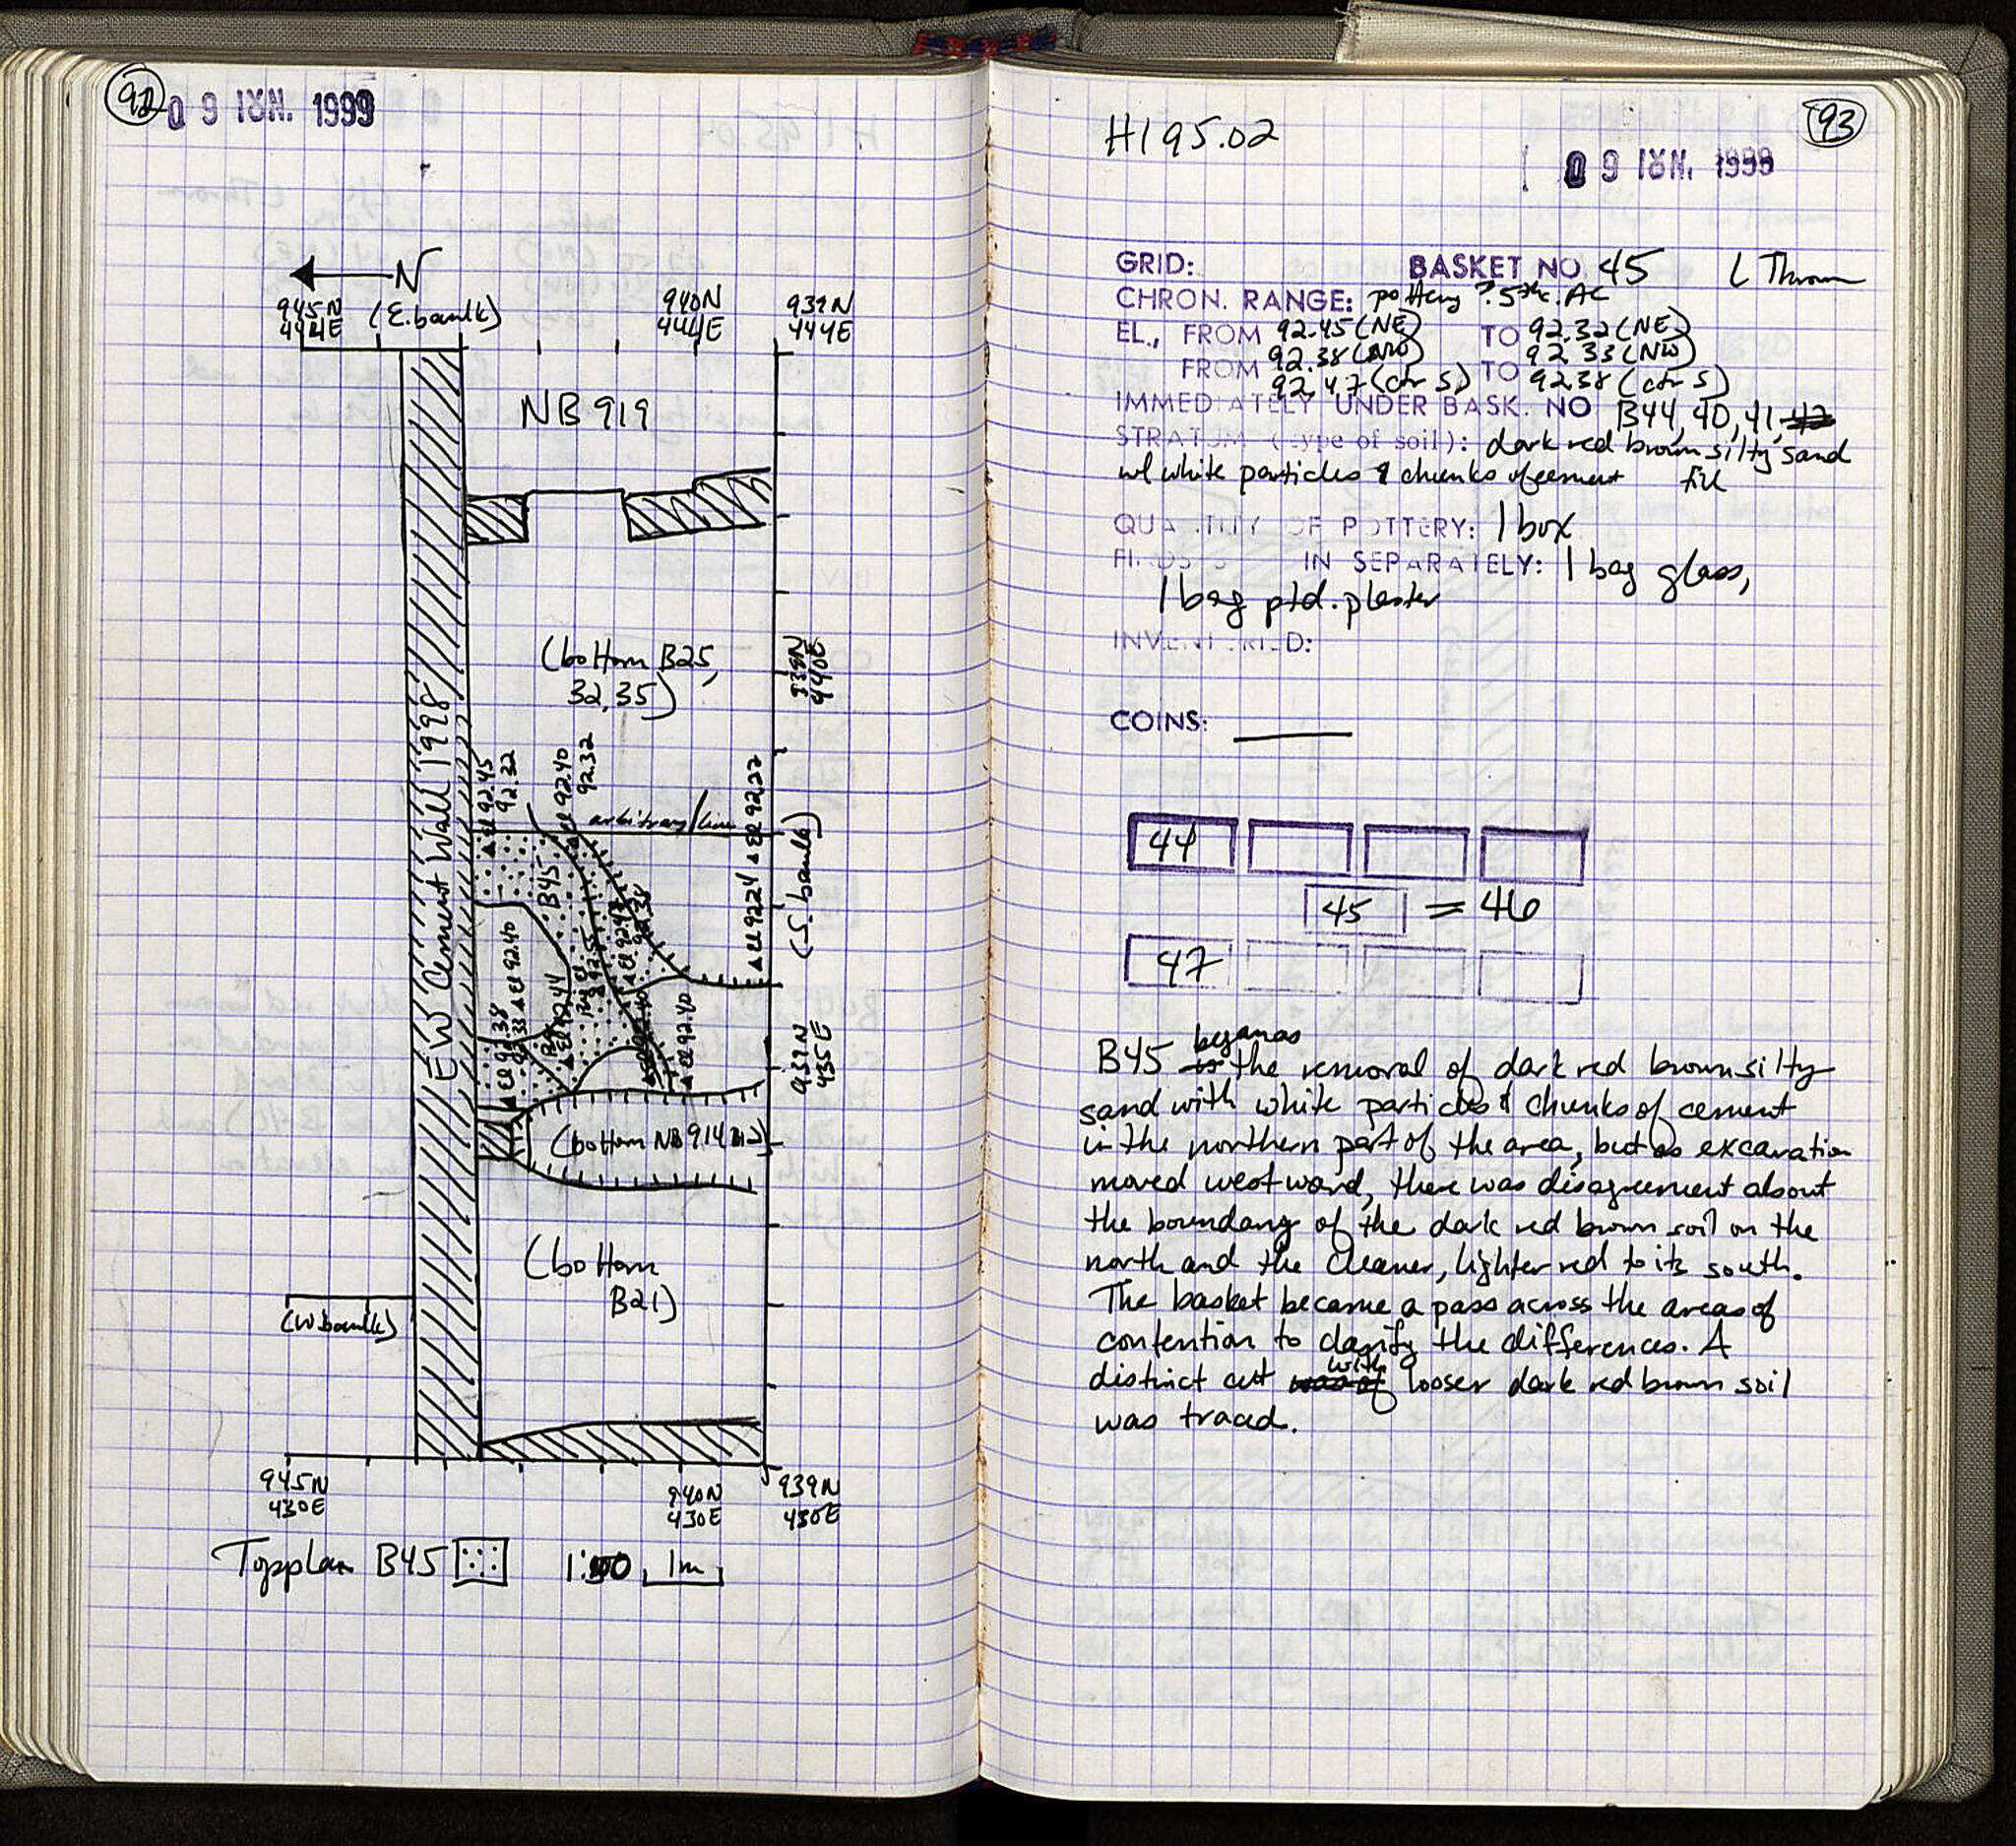 92
09 ΙΟΥΝ. 1999
N
945N
444E
(E. baulk)
940N
444E
939N
444E
NB 919
(bottom B25,
32,35)
939N
440E
E-W Cement Wall 1998
el 92.45
92.32
el 92.40
92.32
arbitrary line
el 92.22
(S. baulk)
B45
el 92.24
el 92.40
el 92.44
92.55
el 92.47
92.38
el 92.38
92.33
el 92.40
939N
435E
(bottom NB 914
(bottom
B21)
(W. baulk)
945N
430E
940N
430E
939N
430E
Topplan B45
1:50
1m
93
H195.02
09 ΙΟΥΝ. 1999
GRID: BASKET NO. 45 L Thrown
CHRON. RANGE: pottery ?.5th c. AC
EL., FROM 92.45 (NE) TO 92.32 (NE)
FROM 92.38 (NW) TO 92.33 (NW)
92.47 (ctr S) 92.38 (ctr S)
IMMEDIATELY UNDER BASK. NO B44, 40, 41, 42
STRATUM (type of soil): dark red brown silty sand
w/ white particles & chunks of cement fill
QUANTITY OF POTTERY: 1 box
IN SEPARATELY: 1 bag glass,
1 bag ptd. plaster
INVENTORIED:
COINS:
44
45 = 46
47
B45 began as the removal of dark red brown silty
sand with white particles & chunks of cement
in the northern part of the area, but as excavation
moved westward, there was disagreement about
the boundary of the dark red brown soil on the
north and the cleaner, lighter red to its south.
The basket became a pass across the areas of
contention to clarify the differences. A
distinct cut with looser dark red brown soil
was traced.